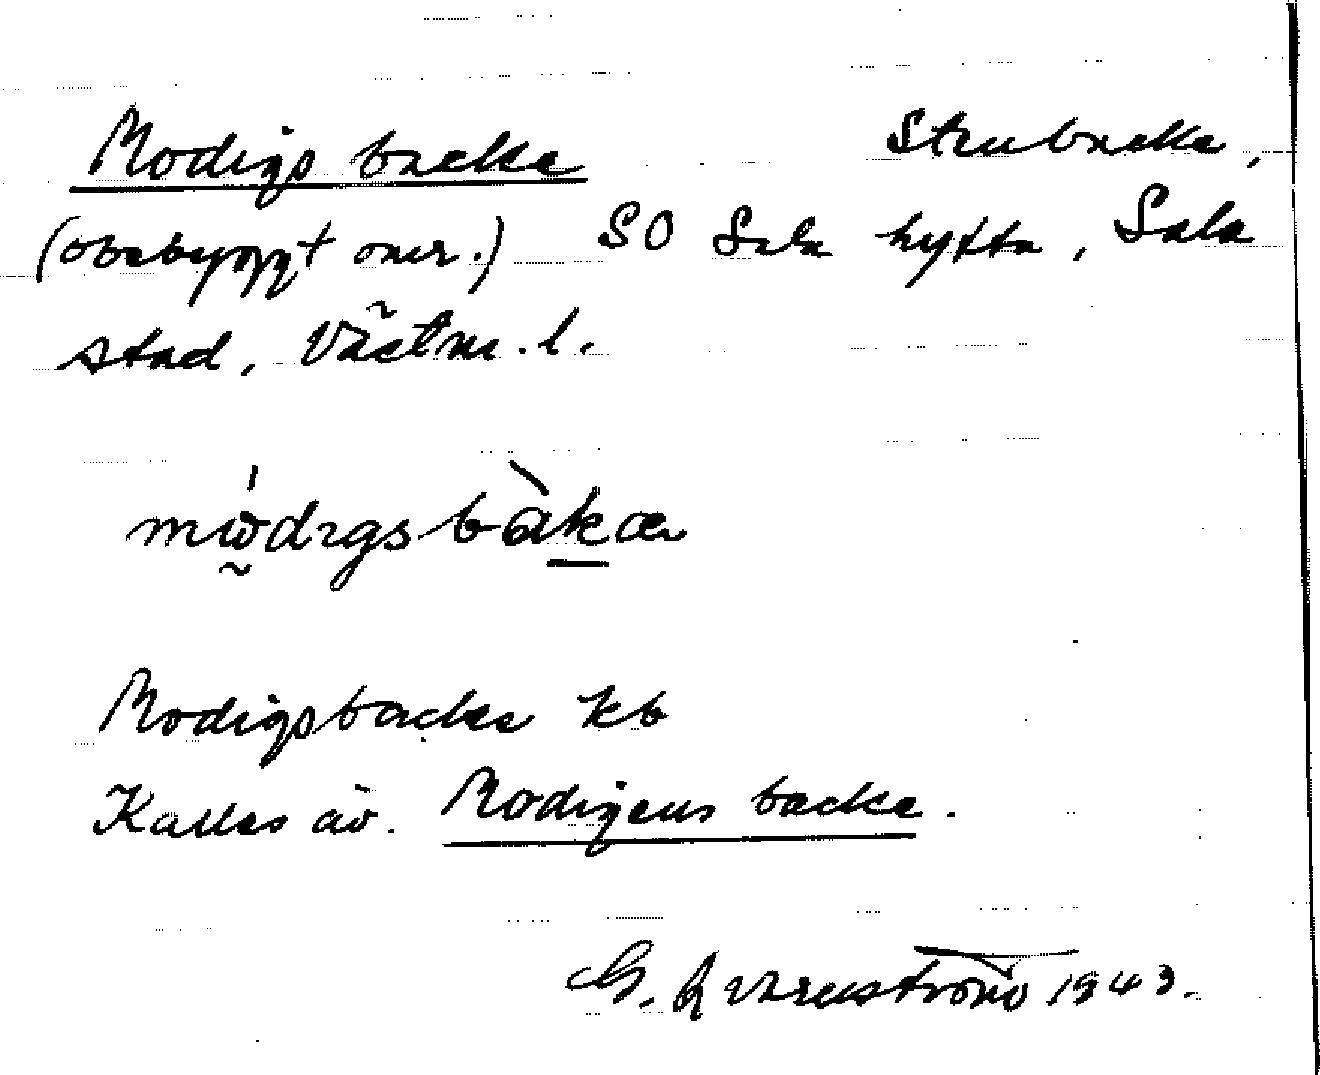 Modigs backe Strubacke,
(obebyggt omr.) SO Sala hytta, Sala
stad, Västm. l.
mὼdıgsbàkæ
Modigsbacke kb
Kallas äv. Modigens backe.
G. Kvarnström 1943.